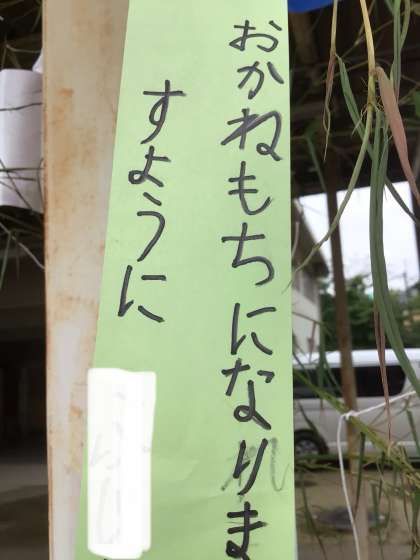 おかねもちになりま
すように